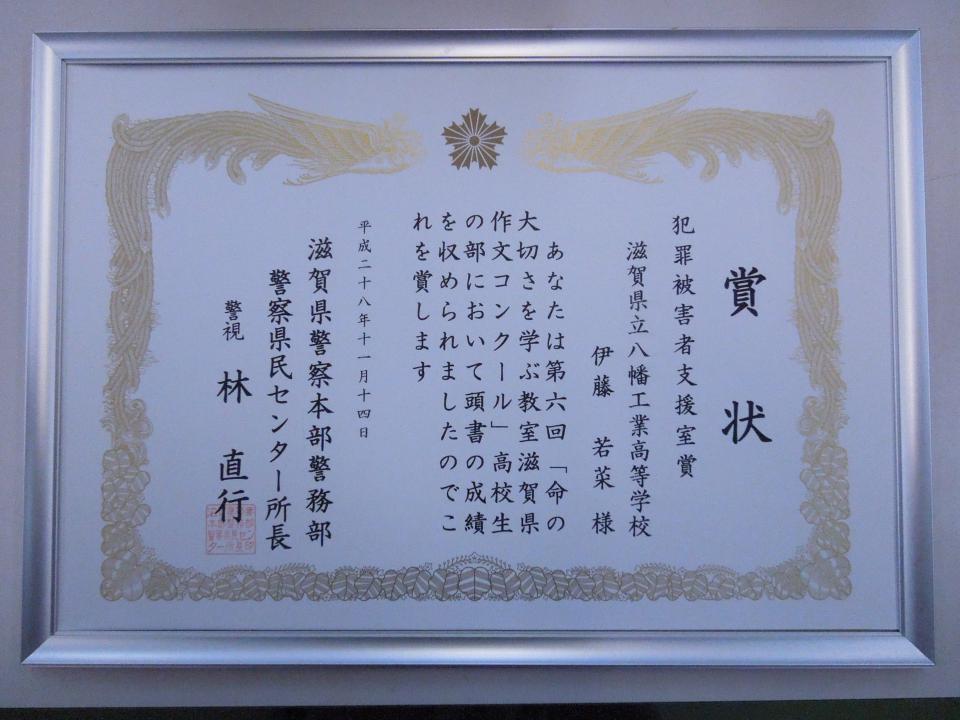 賞状
犯罪被害者支援室賞
滋賀県立八幡工業高等学校
伊藤 若菜 様
あなたは第六回「命の
大切さを学ぶ教室滋賀県
作文コンクール」高校生
の部において頭書の成績
を収められましたのでこ
れを賞します
平成二十八年十一月十四日
滋賀県警察本部警務部
警察県民センター所長
警視 林 直行